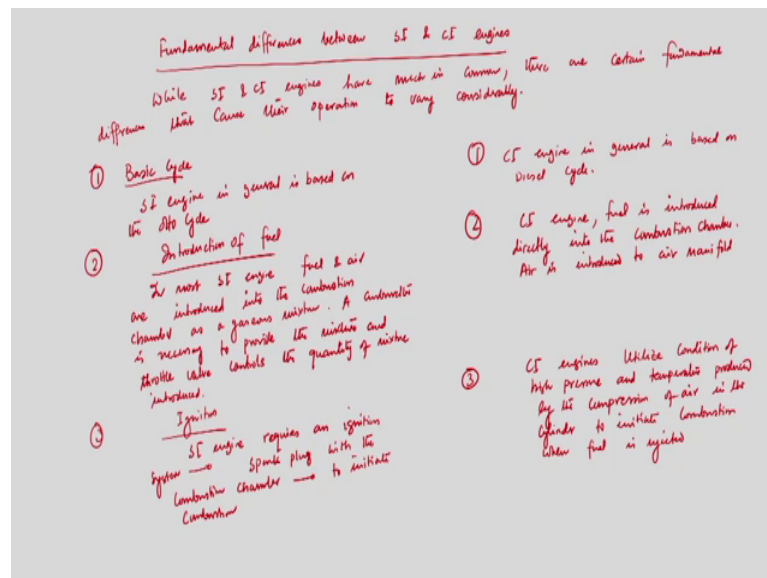 Fundamental differences between SI & CI engines
While SI & CI engines have much in common, there are certain fundamental
differences that cause their operation to vary considerably.
① Basic Cycle
SI engine in general is based on
the Otto Cycle
② Introduction of fuel
In most SI engine fuel & air
are introduced into the combustion
chamber as a gaseous mixture. A carburettor
is necessary to provide the mixture and
throttle valve controls the quantity of mixture
introduced.
③ Ignition
SI engine requires an ignition
system → spark plug with the
combustion chamber → to initiate
combustion
① CI engine in general is based on
Diesel Cycle.
② CI engine, fuel is introduced
directly into the combustion chamber.
Air is introduced to air manifold
③ CI engines utilize condition of
high pressure and temperature produced
by the compression of air in the
cylinder to initiate combustion
when fuel is injected